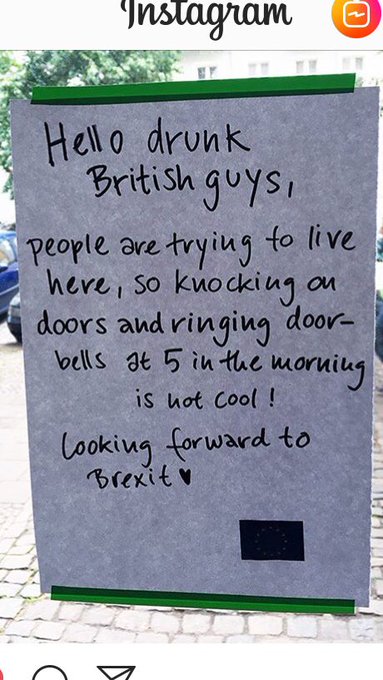 Instagram
Hello drunk
British guys,
people are trying to live
here, so knocking on
doors and ringing door-
bells at 5 in the morning
is not cool !
Looking forward to
Brexit ♥